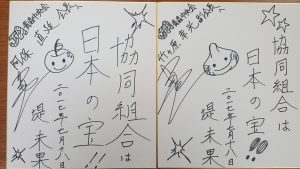 協同組合は
日本の宝!!
二〇一七年七月十八日
堤 未果
会長へ
阿保 直延
協同組合は
日本の宝!!
二〇一七年七月十八日
堤 未果